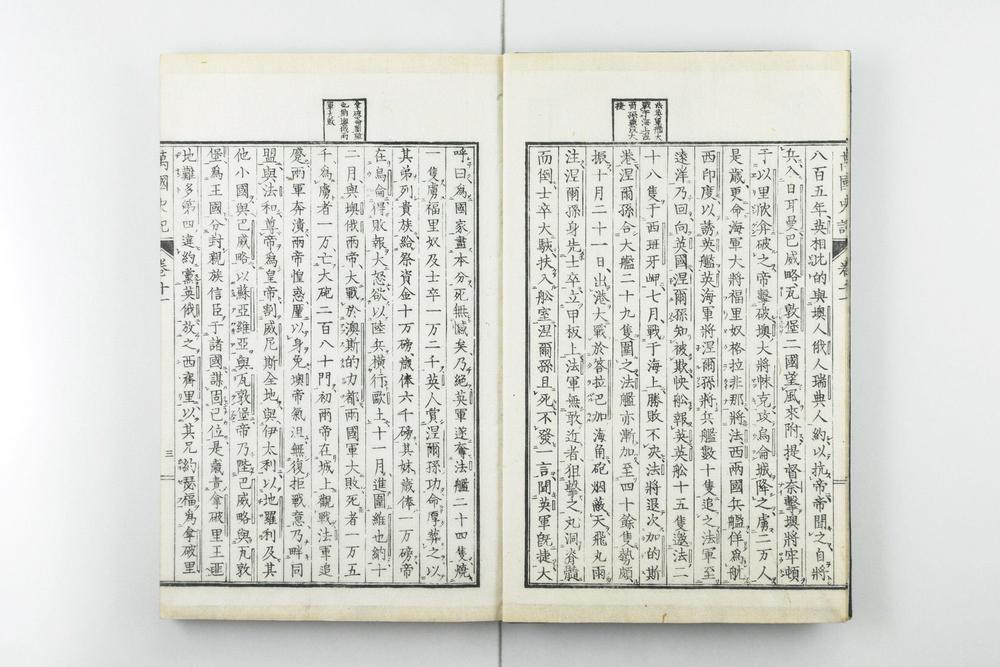 八百五年英相沈的與墺人俄人瑞典人約以抗帝帝聞之自將
兵入日耳曼巴威略瓦敦堡二國望風來附提督奈擊墺將牢頓
于以里欣弇破之帝擊破墺大將怵克攻烏侖城降之虜二万人
是歲更命海軍大將福里奴格拉非那將法西兩國兵艦佯爲航
西印度以誘英艦英海軍將涅爾孫將兵艦數十隻追之法軍至
遠洋乃回向英國涅爾孫知被欺快船報英英船十五隻邀法二
十八隻于西班牙岬七月戰于海上勝敗不決法將退次加的斯
港涅爾孫合大艦二十九隻圍之法艦亦漸加至四十餘隻勢頗
振十月二十一日出港大戰於答拉巴加海角砲烟蔽天飛丸雨
注涅爾孫身先士卒立甲板上法軍無敢近者狙擊之丸洞脊髓
而倒士卒大駭扶入船室涅爾孫且死不發一言聞英軍旣捷大
萬國史記
卷十一
呼曰爲國家盡本分死無憾矣乃絕英軍遂奪法艦二十四隻燒
一隻虜福里奴及士卒一万二千英人賞涅爾孫功命厚葬之以
其弟列貴族給祭資金十万磅歲俸六千磅其妹歲俸一万磅帝
在烏侖得敗報大恐欲以陸兵橫行歐土十一月進圍維也納十
二月與墺俄兩帝大戰於澳斯的力都兩國軍大敗死者一万五
千爲虜者一万亡大砲二百八十門初兩帝在城上觀戰法軍追
蹙兩軍奔潰兩帝惶惑厪以身免墺帝氣沮無復拒戰意乃畔同
盟與法和尊帝爲皇帝割威尼斯全地與伊太利以地羅利及其
他小國與巴威略以蘇亞維亞與瓦敦堡帝乃陞巴威略與瓦敦
堡爲王國分封親族信臣于諸國謀固己位是歲責拿破里王逦
地難多第四違約黨英俄放之西齊里以其兄約瑟福爲拿破里
萬國史記
卷十一
三